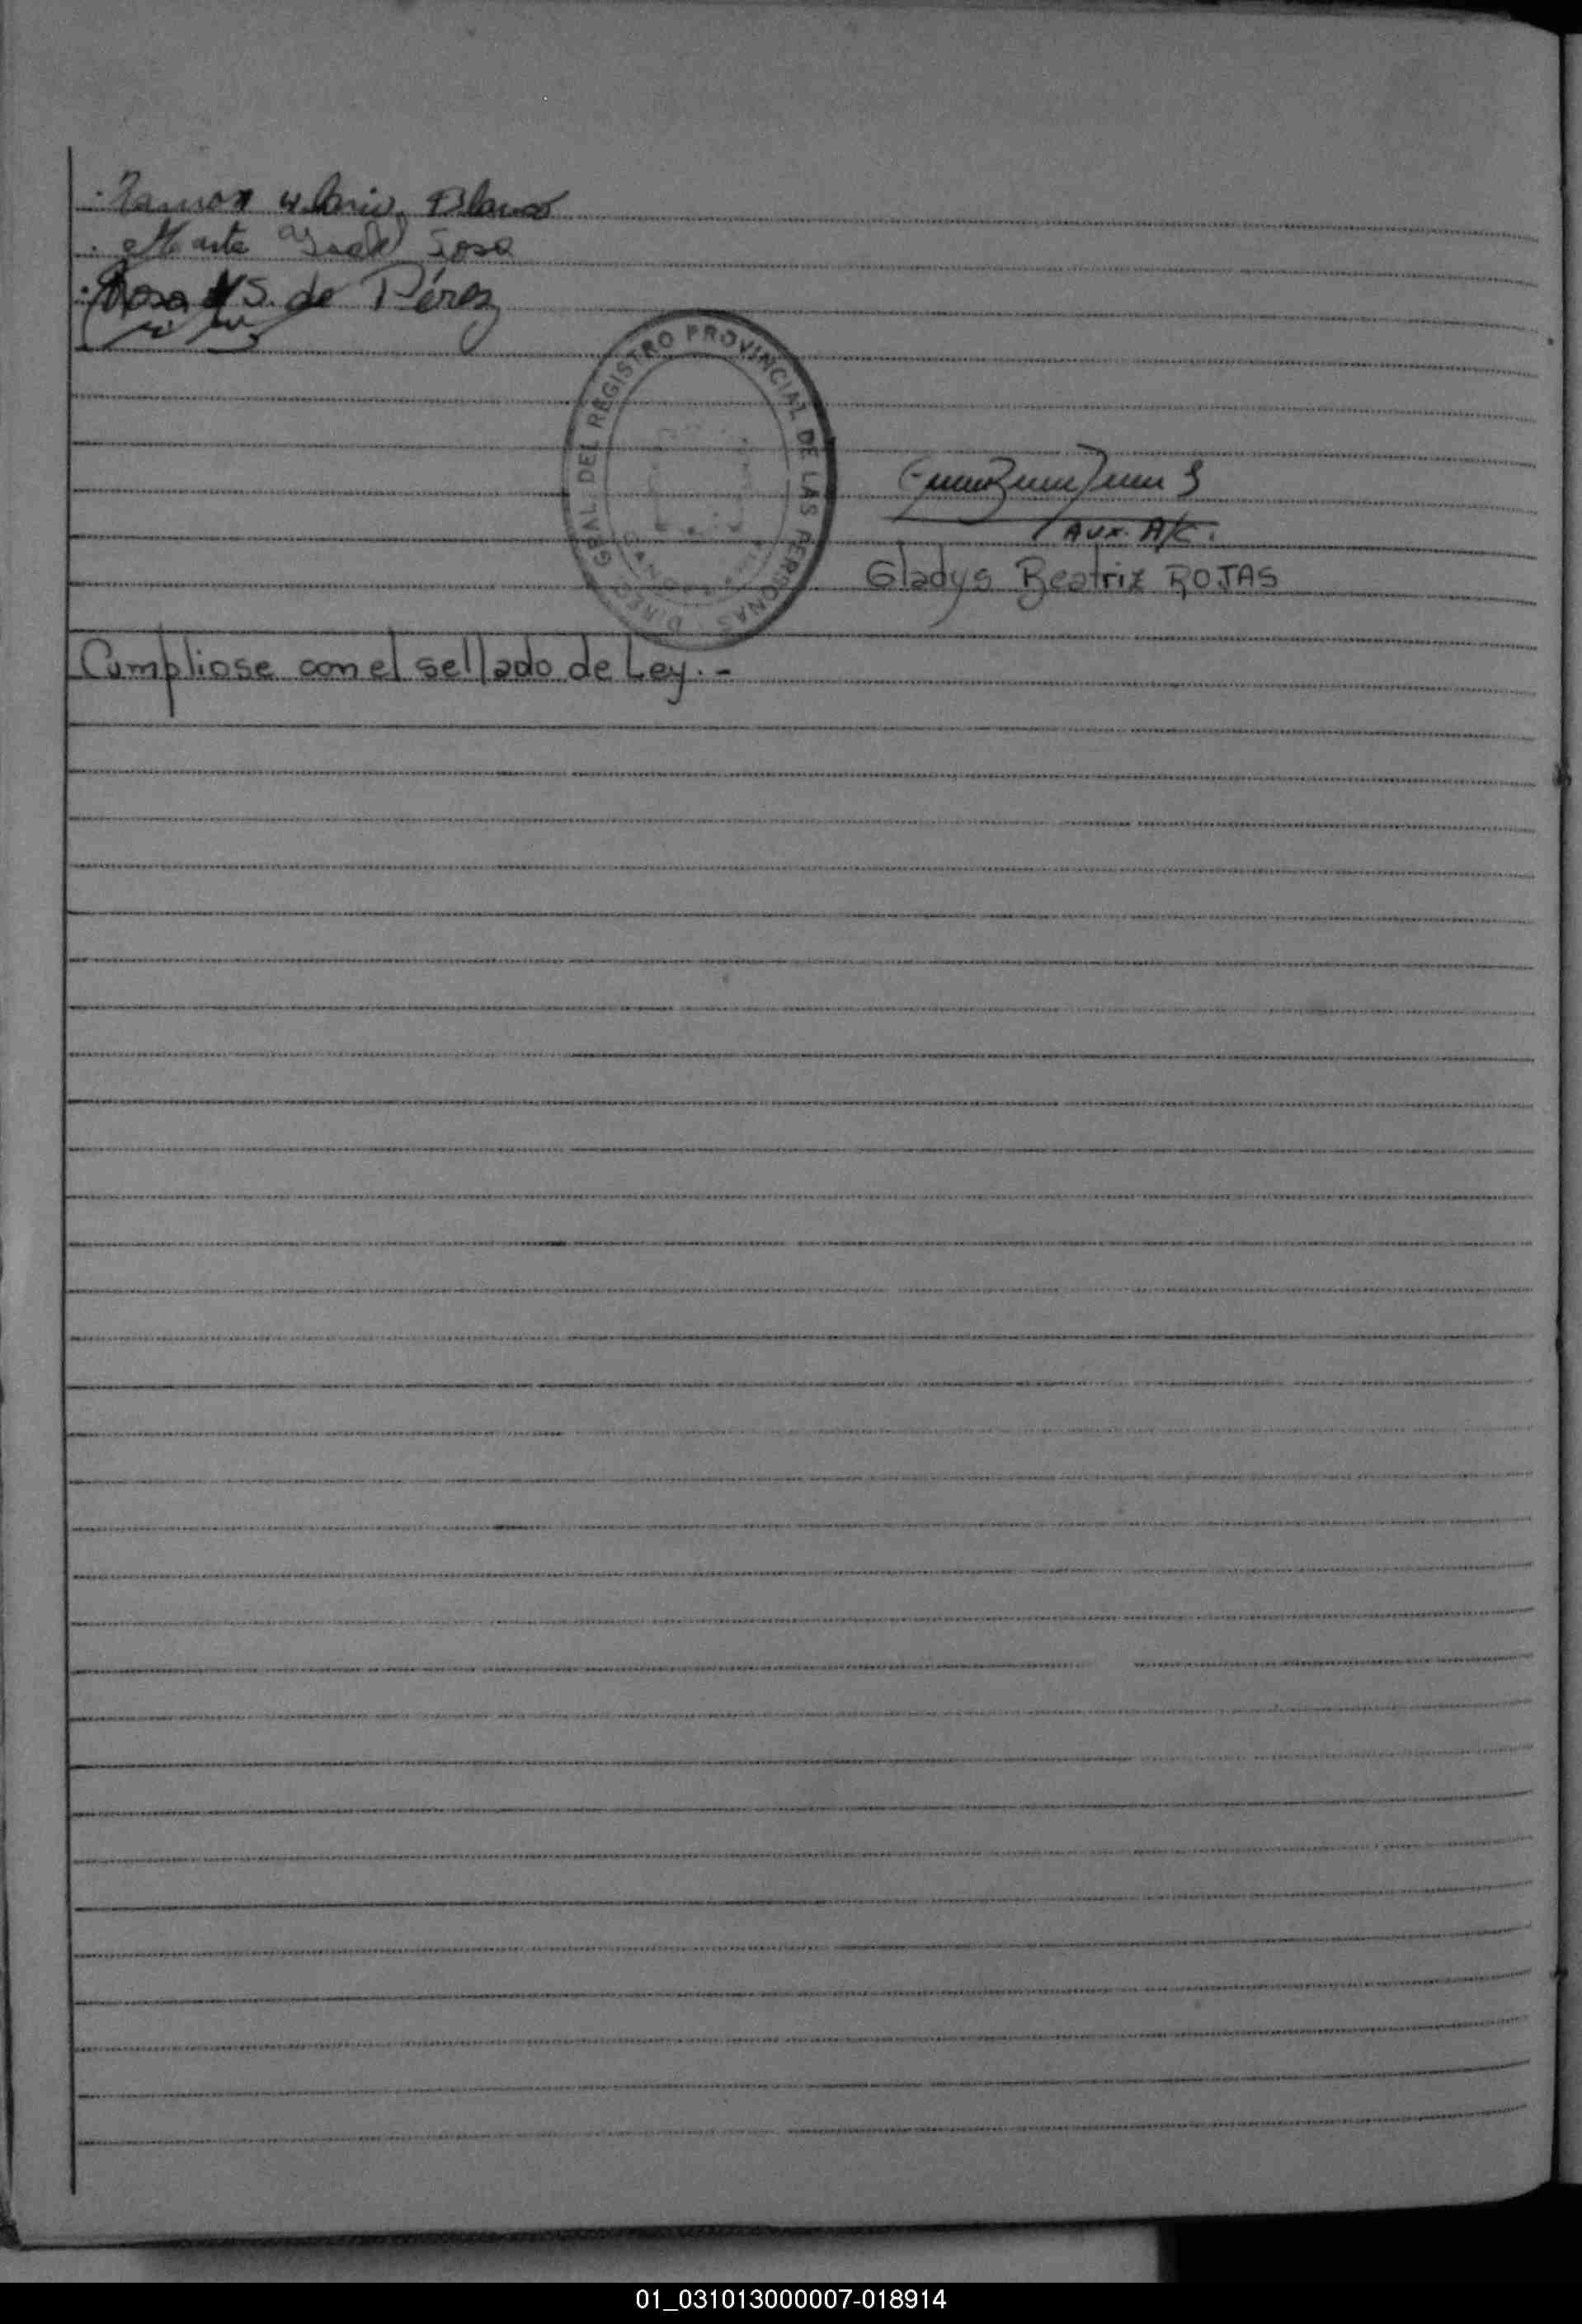 Ramon Blanco
Marta Ysabel Sosa
Rosa S. de Pérez
DIREC. GRAL. DEL REGISTRO PROVINCIAL DE LAS PERSONAS
AUX. A/C.
Gladys Beatriz ROJAS
Cumpliose con el sellado de Ley.-
01_031013000007-018914